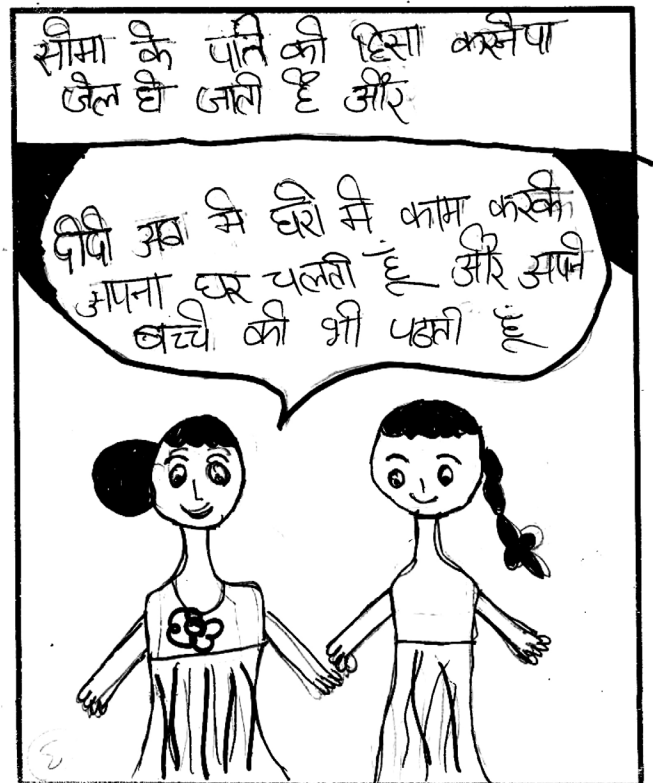 सीमा के पति की हिंसा करनेपा
जेल हो जाती है और
दीदी अब मे घरो मे काम करके
अपना घर चलती हूँ और अपने
बच्चे की भी पढती हूँ